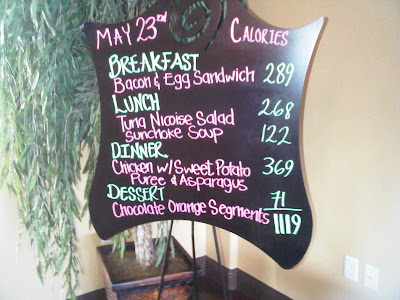 MAY 23rd CALORIES
BREAKFAST
Bacon & Egg Sandwich 289
LUNCH
Tuna Nicoise Salad 268
Sunchoke Soup 122
DINNER
Chicken w/ Sweet Potato 369
Puree & Asparagus
DESSERT 71
Chocolate Orange Segments 1119